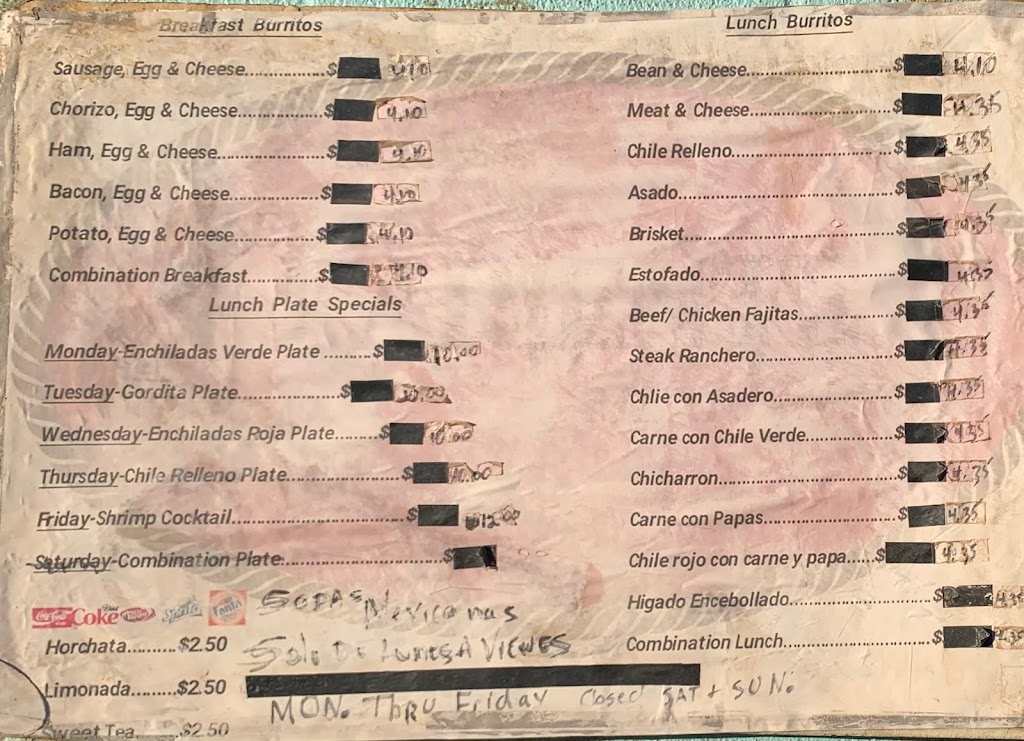 Breakfast Burritos
Sausage, Egg & Cheese..................$ 4.10
Chorizo, Egg & Cheese...................$ 4.10
Ham, Egg & Cheese.......................$ 4.10
Bacon, Egg & Cheese.....................$ 4.10
Potato, Egg & Cheese...................$ 4.10
Combination Breakfast................$ 4.10
Lunch Plate Specials
Monday-Enchiladas Verde Plate .........$ 10.00
Tuesday-Gordita Plate......................$ 10.00
Wednesday-Enchiladas Roja Plate.........$ 10.00
Thursday-Chile Relleno Plate......................$ 10.00
Friday-Shrimp Cocktail..................................$ 12.00
Saturday-Combination Plate................................$
Coca-Cola Diet Coke Sprite Fanta
Horchata.........$2.50
Limonada.........$2.50
Sweet Tea.........$2.50
SODAS Mexicanas
Solo De Lunes A Viernes
MON. Thru Friday Closed SAT + SUN.
Lunch Burritos
Bean & Cheese..............................$ 4.10
Meat & Cheese.............................$ 4.35
Chile Relleno................................$ 4.35
Asado..........................................$ 4.35
Brisket.........................................$ 4.35
Estofado......................................$ 4.35
Beef/ Chicken Fajitas...................$ 4.35
Steak Ranchero...........................$ 4.35
Chlie con Asadero........................$ 4.35
Carne con Chile Verde.................$ 4.35
Chicharron...................................$ 4.35
Carne con Papas..........................$ 4.35
Chile rojo con carne y papa......$ 4.35
Higado Encebollado.............................$ 4.35
Combination Lunch..............................$ 4.35